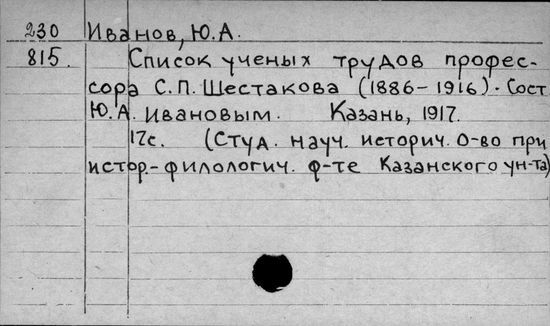 230 Иванов, Ю.А.
815. Список ученых трудов профес-
сора С.П. Шестакова (1886-1916). Сост
Ю.А. Ивановым. Казань, 1917.
17с. (Студ. науч. историч. О-во при
истор.-филологич. ф-те Казанского ун-та)